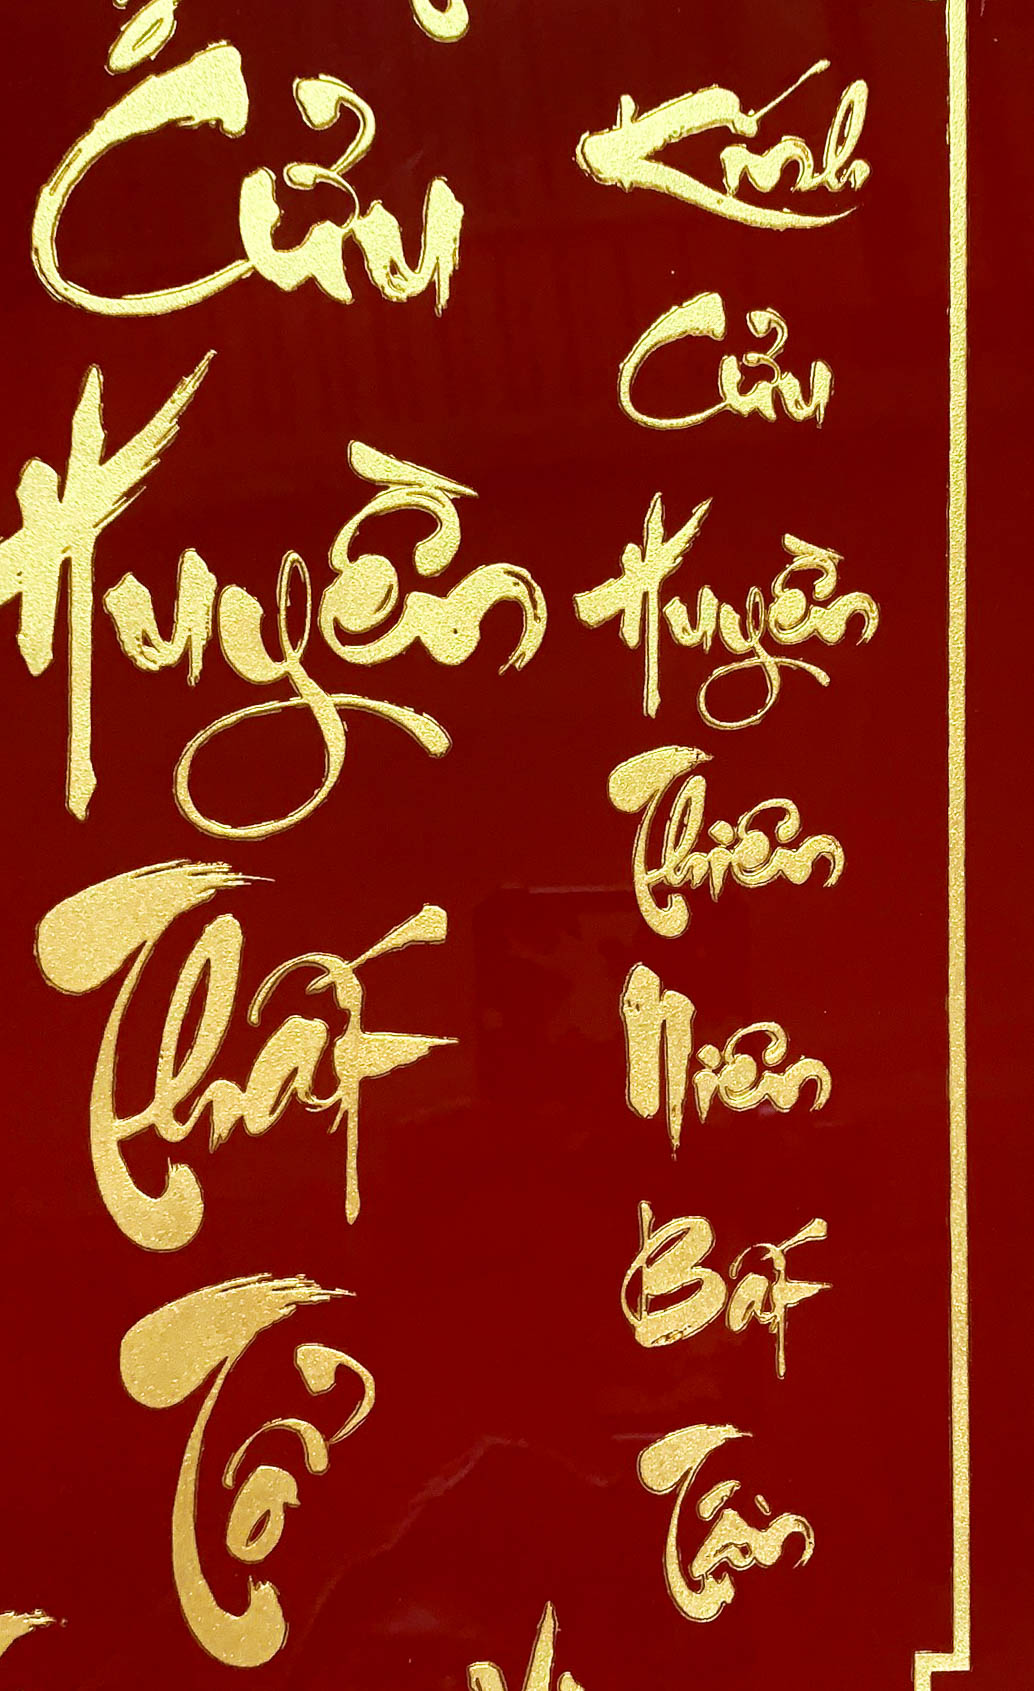 Cửu
Huyền
Thất
Tổ
Kính
Cửu
Huyền
Thiên
Niên
Bất
Tận